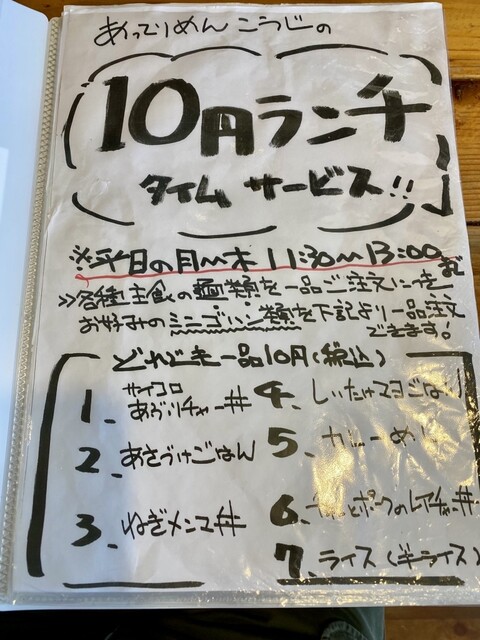 あってりめん こうじの
10円ランチ
タイム サービス!!
※平日の月〜木 11:30〜13:00まで
>>各種主食の麺類を一品ご注文につき
お好みのミニごはん類を下記より一品注文
できます!
どれでも一品10円(税込)
1、サイコロ
あぶりチャー丼
2、あさづけごはん
3、ねぎメンマ丼
4、しいたけマヨごはん
5、カレーめし
6、とポークのレイチャー丼
7、ライス(半ライス)